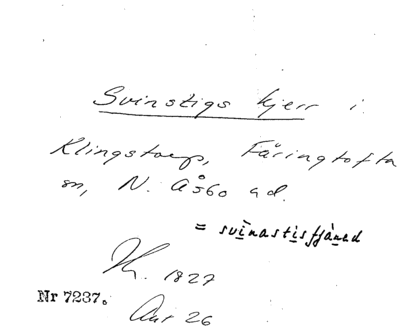 Svinstigs kjerr i
Klingstorp, Färingtofta
sn, N. Åsbo hd.
= svinastisfjäned
1827
Nr 7237.
26